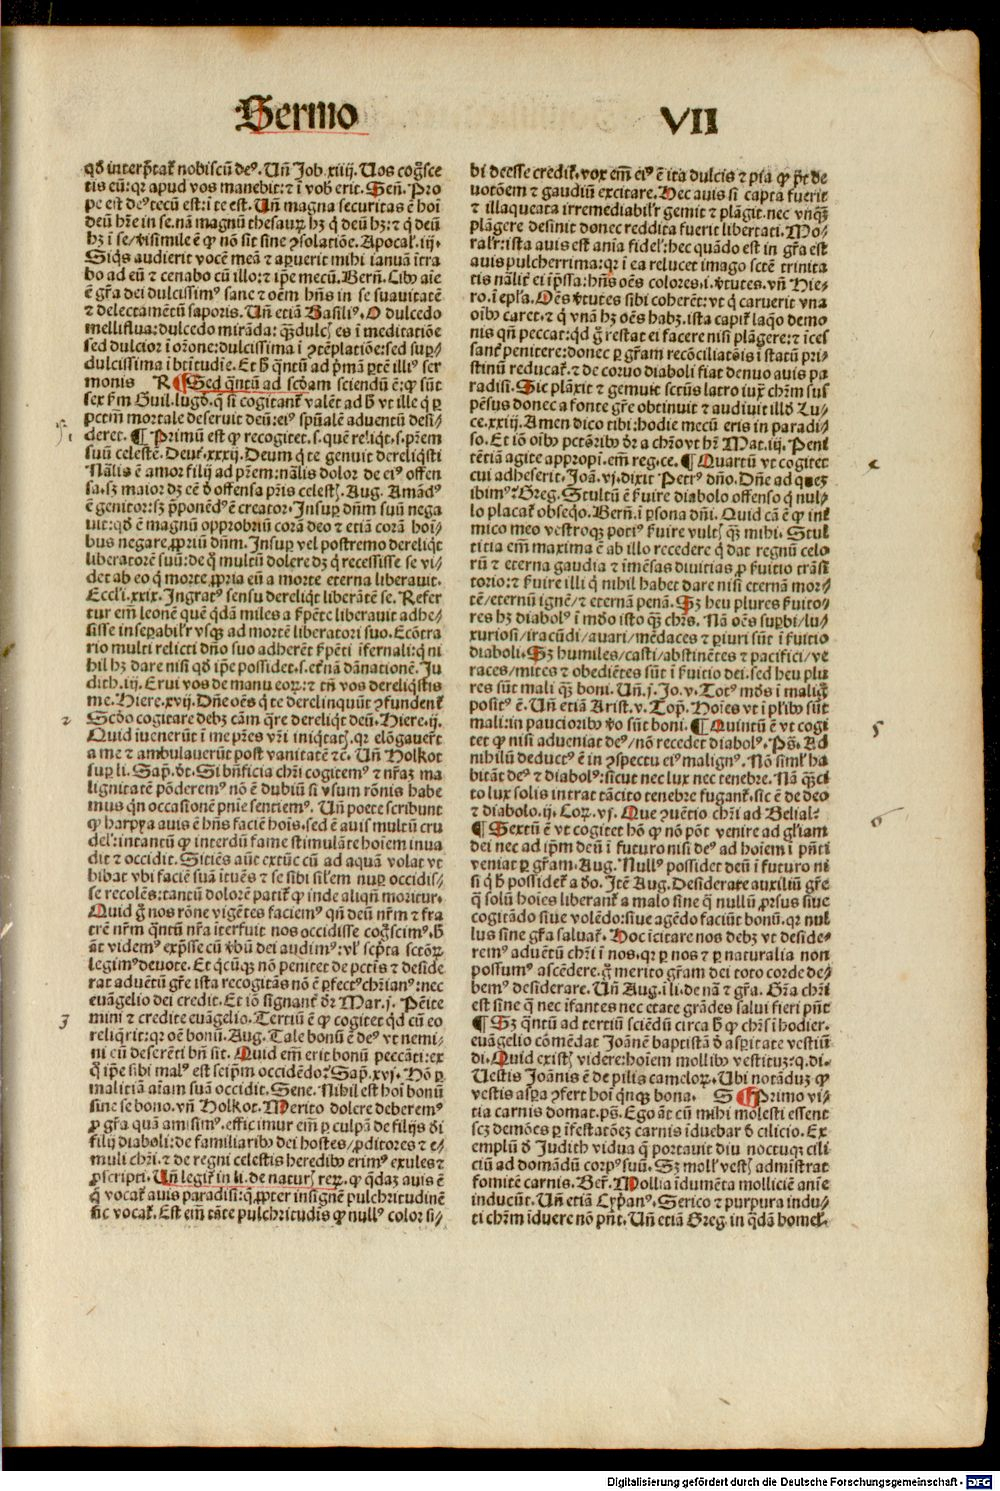 Sermo VII
qd̄ interp̄tat̄ nobiscū deꝰ. Vn̄ Job. xiiij. Vos coḡsce
tis eū: qꝛ apud vos manebit: ⁊ ī vob̄ erit. Sen̄. Pro
pe est deꝰ tecū est: ī te est. Vn̄ magna securitas ē hoī
deū hr̄e in se. nā magnū thesauꝝ hꝫ q̇ deū hꝫ: ⁊ q̇ deū
hꝫ ī se / v̄isimile ē ꝙ nō sit sine ꝯsolatiōe. Apocal̄. iij.
Siq̇s audierit vocē meā ⁊ apuerit mihi ianuā ītra
bo ad eū ⁊ cenabo cū illo: ⁊ ip̄e mecū. Bern̄. Cibꝰ aīe
ē gr̄a dei dulcissimꝰ sane ⁊ oēm hn̄s in se suauitatē
⁊ delectamētū saporis. Vn̄ etiā Basiliꝰ. O dulcedo
melliflua: dulcedo mirāda: q̄ꝫ dulcꝭ es ī meditatiōe
sed dulcior ī orōne: dulcissima ī ꝯtēplatiōe: sed suꝑ/
dulcissima ī bt̄itudīe. Et h̄ q̄ntū ad p̄mā ꝑtē illiꝰ ser
monis R Sed q̄ntū ad scd̄am sciendū ē: ꝙ sūt
sex ẜm Guil. lugd̄. q̄ si cogitant̄ valēt ad h̄ vt ille q̇ ꝑ
pctm̄ mortale deseruit deū: eiꝰ sp̄ualē aduentū desi/
deret. ¶ Primū est ꝙ recogitet. s. quē reliq̇t. s. pr̄em
suū celestē. Deut̄. xxxij. Deum q̇ te genuit dereliq̇sti
Nālis ē amor filij ad pr̄em: nālis dolor de eiꝰ offen
sa. sꝫ maior dꝫ eē d̄ offensa pr̄is celestꝭ. Aug. Amādꝰ
ē genitor: sꝫ p̄ponēdꝰ ē creator. Insuꝑ dn̄m suū nega
uit: qd̄ ē magnū opprobriū corā deo ⁊ etiā corā hoī/
bus negare ꝓpriū dn̄m. Insuꝑ vel postremo dereliq̇t
liberatorē suū: de q̇ multū dolere dꝫ q̇ recessisse se vi/
det ab eo q̇ morte ꝓpria eū a morte eterna liberauit.
Eccl̄i. xxix. Ingratꝰ sensu dereliq̇t liberātē se. Refer
tur em̄ leonē quē q̇dā miles a ẜpēte liberauit adhe/
sisse insepabil̄r vsqꝫ ad mortē liberatori suo. Ecōtra
rio multi relicti dn̄o suo adherēt ẜpēti īfernali: q̇ ni
hil hꝫ dare nisi qd̄ ip̄e possidet. s. et̄nā dānationē. Ju
dith. ij. Erui vos de manu eoꝝ: ⁊ tn̄ vos dereliq̇stis
me. Hiere. xvij. Dn̄e oēs q̇ te derelinquūt ꝯfundent̄
2 Scd̄o cogitare debꝫ cām q̄re dereliq̇t deū. Hiere. ij.
Quid iuenerūt ī me pr̄es vr̄i iniq̇tatꝭ. qꝛ elōgauer̄t
a me ⁊ ambulauerūt post vanitatē ⁊c̄. Vn̄ Holkot
suꝑ li. Sap̄. d̄t. Si bn̄ficia chr̄i cogitemꝰ ⁊ nr̄aꝫ ma
lignitatē pōderemꝰ nō ē dubiū si vsum rōnis habe
mus q̇n occasionē pn̄ie sentiemꝰ. Vn̄ poete scribunt
ꝙ harpya auis ē hn̄s faciē hoīs. sed ē auis multū cru
del̄: intantū ꝙ interdū fame stimulāte hoīem inua
dit ⁊ occidit. Sitiēs aūt extūc cū ad aquā volat vt
bibat vbi faciē suā ituēs ⁊ se sibi sil̄em nuꝑ occidis/
se recolēs: tantū dolorē patit̄ ꝙ inde aliqn̄ moritur.
Quid g̊ nos rōne vigētes faciemꝰ qn̄ deū nr̄m ⁊ fra
trē nr̄m q̄ntū nr̄a īterfuit nos occidisse coḡscimꝰ. h̄
āt videmꝰ exp̄sse cū v̄bū dei audimꝰ: vl̄ sc̄pta sctōꝝ
legimꝰ deuote. Et q̇cūqꝫ nō penitet de pctīs ⁊ deside
rat aduētū gr̄e ista recogitās nō ē ꝑfectꝰ chr̄ianꝰ: nec
euāgelio dei credit. Et iō signant̄ dr̄ Mar. j. Pēite
3 mini ⁊ credite euāgelio. Tertiū ē ꝙ cogitet q̇d cū eo
reliq̇rit: qꝛ oē bonū. Aug. Tale bonū ē deꝰ vt nemi/
ni cū deserēti bn̄ sit. Quid em̄ erit bonū peccāti: ex
q̇ ip̄e sibi malꝰ est seip̄m occidēdo? Sap̄. xvj. Hō ꝑ
malitiā aīam suā occidit. Sene. Nihil est hoī bonū
sine se bono. vn̄ Holkot. Merito dolere deberemꝰ
ꝓ gr̄a quā amisimꝰ. efficimur em̄ ꝑ culpā de filijs d̄i
filij diaboli: de familiaribꝰ dei hostes / ꝓditores ⁊ e/
muli chr̄i. ⁊ de regni celestis heredibꝰ erimꝰ exules ⁊
ꝓscripti. Vn̄ legit̄ in li. de naturꝭ reꝝ. ꝙ q̇daꝫ auis ē
q̄ vocat̄ auis paradisi: q̄ ꝓpter insignē pulchritudinē
sic vocat̄. Est em̄ tāte pulchritudīs ꝙ nullꝰ color si/
bi deesse credit̄. vox em̄ eiꝰ ē ita dulcis ⁊ pia ꝙ p̄t de
uotōem ⁊ gaudiū excitare. Hec auis si capta fuerit
⁊ illaqueata irremediabil̄r gemit ⁊ plāgit. nec vnq̄ꝫ
plāgere desinit donec reddita fuerit libertati. Mo/
ral̄r: ista auis est aīa fidel̄: hec quādo est in gr̄a est
auis pulcherrima: qꝛ ī ea relucet imago scte trinita
tis nāl̄it̄ ei īp̄ssa: hn̄s oēs colores. i. v̄tutes. vn̄ Hie/
ro. ī epl̄a. Oēs v̄tutes sibi coherēt: vt q̇ caruerit vna
oībꝰ caret. ⁊ q̇ vnā hꝫ oēs habꝫ. ista capit̄ laq̄o demo
nis qn̄ peccat: q̇d g̊ restat ei facere nisi plāgere: ⁊ īces
sant̄ penitere: donec ꝑ gr̄am recōciliatōis ī statū pri/
stinū reducat̄. ⁊ de coruo diaboli fiat denuo auis pa
radisi. Sic plāxit ⁊ gemuit sctūs latro iux̄ chr̄m sus
pēsus donec a fonte gr̄e obtinuit ⁊ audiuit illd̄ Lu/
ce. xxiij. Amen dico tibi: hodie mecū eris in paradi/
so. Et iō oībꝰ pctōribꝰ dr̄ a chr̄o vt hr̄ Mat. iij. Peni
tētiā agite appropī. em̄ reg. ce. ¶ Quartū vt cogitet
cui adheserit. Joā. vj. dixit Petrꝰ dn̄o. Dn̄e ad queꝫ
ibimꝰ? Greg. Stultū ē ẜuire diabolo offenso q̇ nul/
lo placat̄ obseq̇o. Bern̄. ī ꝑsona dn̄i. Quid cā ē ꝙ ini
mico meo vestroqꝫ potiꝰ ẜuire vultꝭ q̄ꝫ mihi. Stul
titia em̄ maxima ē ab illo recedere q̇ dat regnū celo
rū ⁊ eterna gaudia ⁊ īmēsas diuitias ꝓ ẜuitio trāsi
torio: ⁊ ẜuire illi q̇ nihil habet dare nisi eternā mor/
tē / eternū ignē / ⁊ eternā penā. Sꝫ heu plures ẜuito/
res hꝫ diabolꝰ ī mūdo isto q̄ꝫ chr̄s. Nā oēs suꝑbi / lu/
xuriosi / iracūdi / auari / mēdaces ⁊ ꝑiuri sūt ī ẜuitio
diaboli. Sꝫ humiles / casti / abstinētes ⁊ pacifici / ve
races / mites ⁊ obediētes sūt ī ẜuitio dei. sed heu plu
res sunt mali q̄ꝫ boni. Vn̄. j. Jo. v. Totꝰ mūdꝰ ī malig̊
positꝰ ē. Vn̄ etiā Arist. v. Top̄. Hoīes vt ī pl̄ibꝰ sūt
mali: in paucioribꝰ v̊o sūt boni. ¶ Quintū ē vt cogi
tet ꝙ nisi adueniat deꝰ / nō recedet diabolꝰ. Ps̄. Ad
nihilū deductꝰ ē in ꝯspectu eiꝰ malignꝰ. Nō siml̄ ha
bitāt deꝰ ⁊ diabolꝰ: sicut nec lux nec tenebre. Nā q̄ꝫci
to lux solis intrat tācito tenebre fugant̄. sic ē de deo
⁊ diabolo. ij. Cor. vj. Que ꝯuētio chr̄i ad Belial?
¶ Sextū ē vt cogitet hō ꝙ nō pōt venire ad gl̄iam
dei nec ad ip̄m deū ī futuro nisi deꝰ ad hoīem ī pn̄ti
veniat ꝑ gr̄am. Aug. Nullꝰ possidet deū ī futuro ni
si q̇ h̄ possidet̄ a d̄o. Itē Aug. Desiderare auxiliū gr̄e
q̄ solū hoīes liberant̄ a malo sine q̄ nullū ꝓrsus siue
cogitādo siue volēdo: siue agēdo faciūt bonū. qꝛ nul
lus sine gr̄a saluat̄. Hoc īcitare nos debꝫ vt deside/
remꝰ aduētū chr̄i ī nos. qꝛ ꝑ nos ⁊ ꝑ naturalia non
possumꝰ ascēdere. g̊ merito gr̄am dei toto corde de/
bemꝰ desiderare. Vn̄ Aug. ī li. de nā ⁊ gr̄a. Gr̄a chr̄i
est sine q̄ nec īfantes nec etate grādes salui fieri pn̄t
¶ Sꝫ q̄ntū ad tertiū sciēdū circa h̄ ꝙ chr̄s ī hodier.
euāgelio cōmēdat Joānē baptistā d̄ asꝑitate vestiū
di. Quid existꝭ videre: hoīem mollibꝰ vestituꝫ: q. di.
Vestis Joānis ē de pilis cameloꝝ. Vbi notāduꝫ ꝙ
vestis asꝑa ꝯfert hoī q̇nqꝫ bona. S Primo vi/
tia carnis domat. ps̄. Ego āt cū mihi molesti essent
scꝫ demōes ꝑ īfestatōeꝫ carnis īduebar d̄ cilicio. Ex
emplū d̄ Judith vidua q̄ portauit diu noctuqꝫ cili
ciū ad domādū corpꝰ suū. Sꝫ mollꝭ vestꝭ admīstrat
fomitē carnis. Ber̄. Mollia īdumēta molliciē anie
inducūt. Vn̄ etiā Cyp̄anꝰ. Serico ⁊ purpura indu/
ti chr̄m īduere nō pn̄t. Vn̄ etiā Greg. in q̄dā homel̄.
5
6
Digitalisierung gefördert durch die Deutsche Forschungsgemeinschaft - DFG